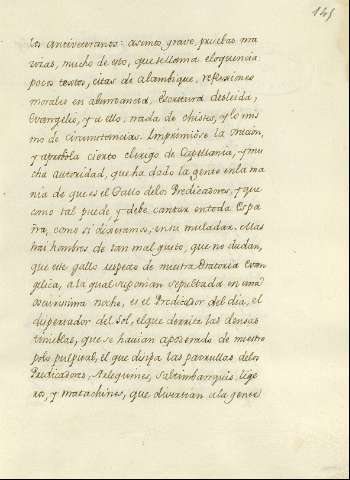 145
los antiveteranos: asunto grave, pruebas ma
cizas, mucho de esto, que se llama eloquencia
pocos textos, citas de alambique, reflexiones
morales en abundancia, Escritura desleida,
Evangelio, y a ello: nada de chistes, y lo mis
mo de circunstancias. Imprimiòse la oracion,
y apestòla cierto clerigo de Capellania, y mu
cha autoridad, que ha dado la gente en la ma
nia de que es el Gallo delos Predicadores, y que
como tal puede y debe cantar en toda Espa
ña, como si dixeramos, en su muladar. Mas
hai hombres de tan mal gusto, que no dudan,
que este gallo respecto de nuestra Oratoria Evan
gelica, a la qual suponian sepultada en una
obscurissima noche, es el Predicador del dia, el
despertador del Sol, el que derrite las densas
tinieblas, que se havian apoderado de nuestro
polo pulpital, el que disipa las patrullas delos
Predicadores, Arlequines, Saltimbanquis, lige
ros, y matachines, que divertian a la gente